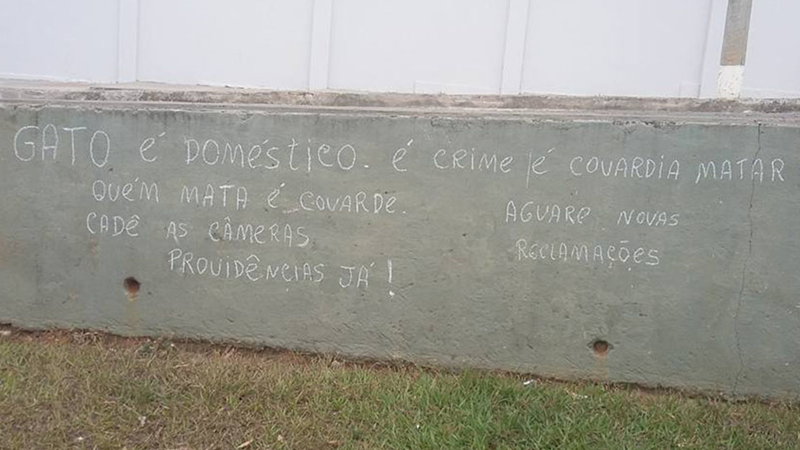 GATO É DOMÉSTICO. É CRIME / É COVARDIA MATAR
QUÉM MATA É COVARDE.
CADÊ AS CÂMERAS
PROVIDÊNCIAS JÁ!
AGUARE NOVAS
RECLAMAÇÕES